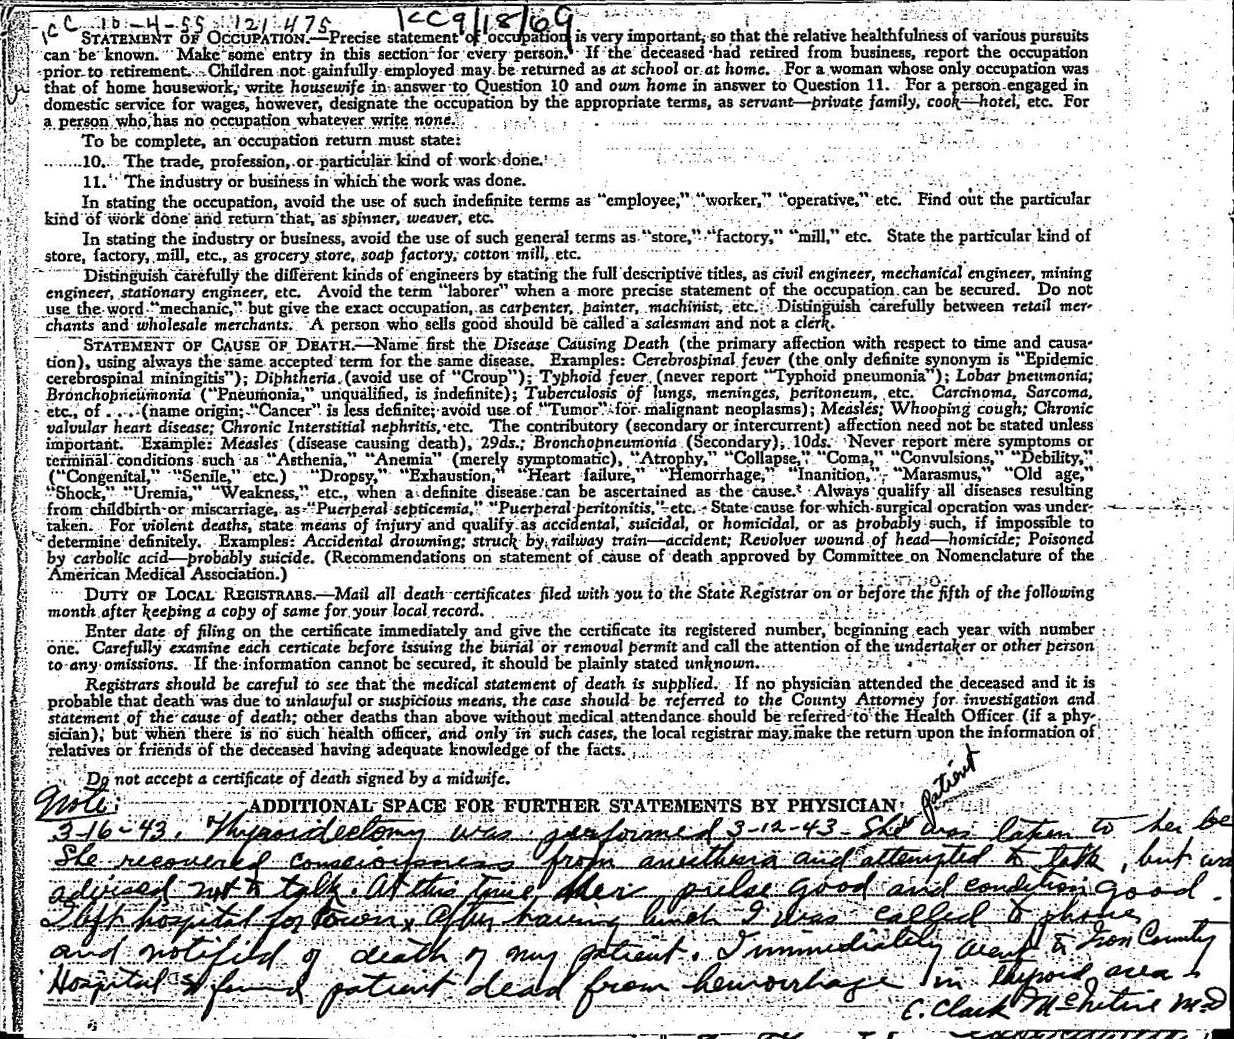 CC 10-4-55 121 475 CC9/18/69
STATEMENT OF OCCUPATION.—Precise statement of occupation is very important, so that the relative healthfulness of various pursuits
can be known. Make some entry in this section for every person. If the deceased had retired from business, report the occupation
prior to retirement. Children not gainfully employed may be returned as at school or at home. For a woman whose only occupation was
that of home housework, write housewife in answer to Question 10 and own home in answer to Question 11. For a person engaged in
domestic service for wages, however, designate the occupation by the appropriate terms, as servant—private family, cook—hotel, etc. For
a person who has no occupation whatever write none.
To be complete, an occupation return must state:
10. The trade, profession, or particular kind of work done.
11. The industry or business in which the work was done.
In stating the occupation, avoid the use of such indefinite terms as "employee," "worker," "operative," etc. Find out the particular
kind of work done and return that, as spinner, weaver, etc.
In stating the industry or business, avoid the use of such general terms as "store," "factory," "mill," etc. State the particular kind of
store, factory, mill, etc., as grocery store, soap factory, cotton mill, etc.
Distinguish carefully the different kinds of engineers by stating the full descriptive titles, as civil engineer, mechanical engineer, mining
engineer, stationary engineer, etc. Avoid the term "laborer" when a more precise statement of the occupation can be secured. Do not
use the word "mechanic," but give the exact occupation, as carpenter, painter, machinist, etc. Distinguish carefully between retail mer-
chants and wholesale merchants. A person who sells good should be called a salesman and not a clerk.
STATEMENT OF CAUSE OF DEATH.—Name first the Disease Causing Death (the primary affection with respect to time and causa-
tion), using always the same accepted term for the same disease. Examples: Cerebrospinal fever (the only definite synonym is "Epidemic
cerebrospinal miningitis"); Diphtheria (avoid use of "Croup"); Typhoid fever (never report "Typhoid pneumonia"); Lobar pneumonia;
Bronchopneumonia ("Pneumonia," unqualified, is indefinite); Tuberculosis of lungs, meninges, peritoneum, etc. Carcinoma, Sarcoma,
etc., of . . . . (name origin; "Cancer" is less definite; avoid use of "Tumor" for malignant neoplasms); Measles; Whooping cough; Chronic
valvular heart disease; Chronic Interstitial nephritis, etc. The contributory (secondary or intercurrent) affection need not be stated unless
important. Example: Measles (disease causing death), 29ds.; Bronchopneumonia (Secondary), 10ds. Never report mere symptoms or
terminal conditions such as "Asthenia," "Anemia" (merely symptomatic), "Atrophy," "Collapse," "Coma," "Convulsions," "Debility,"
("Congenital," "Senile," etc.) "Dropsy," "Exhaustion," "Heart failure," "Hemorrhage," "Inanition," "Marasmus," "Old age,"
"Shock," "Uremia," "Weakness," etc., when a definite disease can be ascertained as the cause. Always qualify all diseases resulting
from childbirth or miscarriage, as "Puerperal septicemia," "Puerperal peritonitis," etc. State cause for which surgical operation was under-
taken. For violent deaths, state means of injury and qualify as accidental, suicidal, or homicidal, or as probably such, if impossible to
determine definitely. Examples: Accidental drowning; struck by railway train—accident; Revolver wound of head—homicide; Poisoned
by carbolic acid—probably suicide. (Recommendations on statement of cause of death approved by Committee on Nomenclature of the
American Medical Association.)
DUTY OF LOCAL REGISTRARS.—Mail all death certificates filed with you to the State Registrar on or before the fifth of the following
month after keeping a copy of same for your local record.
Enter date of filing on the certificate immediately and give the certificate its registered number, beginning each year with number
one. Carefully examine each certicate before issuing the burial or removal permit and call the attention of the undertaker or other person
to any omissions. If the information cannot be secured, it should be plainly stated unknown.
Registrars should be careful to see that the medical statement of death is supplied. If no physician attended the deceased and it is
probable that death was due to unlawful or suspicious means, the case should be referred to the County Attorney for investigation and
statement of the cause of death; other deaths than above without medical attendance should be referred to the Health Officer (if a phy-
sician); but when there is no such health officer, and only in such cases, the local registrar may make the return upon the information of
relatives or friends of the deceased having adequate knowledge of the facts.
Do not accept a certificate of death signed by a midwife.
Note: ADDITIONAL SPACE FOR FURTHER STATEMENTS BY PHYSICIAN patient
3-16-43. Thyroidectomy was performed 3-12-43 She was taken to her be
She recovered consciousness from anesthesia and attempted to talk, but was
advised not to talk. At this time her pulse good and condition good.
I left hospital for town, After having lunch I was called to phone
and notified of death of my patient. I immediately went to Iron County
Hospital & found patient dead from hemorrhage in thyroid area
C. Clark McIntire MD